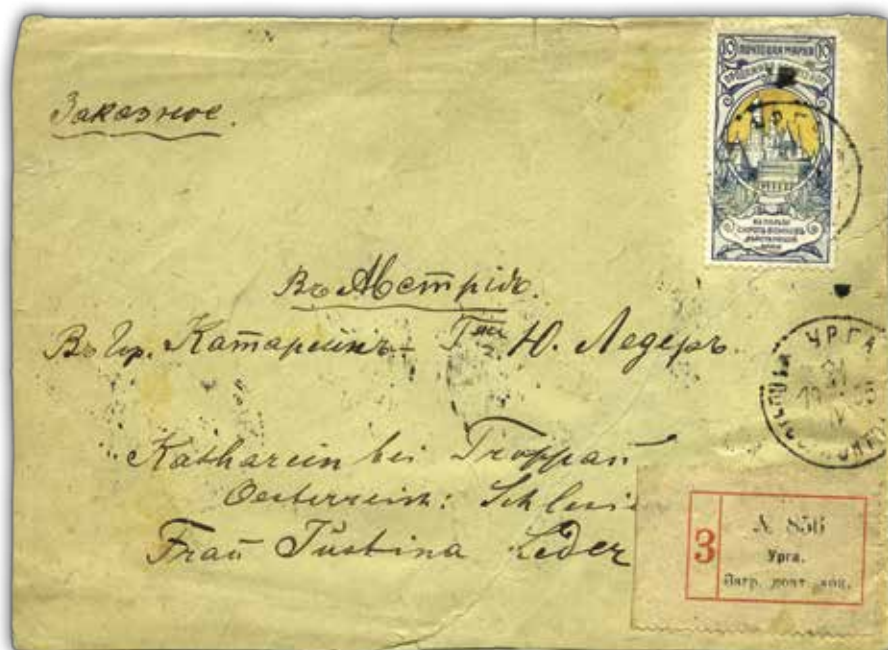 Заказное.
10 ПОЧТОВАЯ МАРКА 10
ВЪ ПОЛЬЗУ
СИРОТЪ ВОИНОВЪ
ДѢЙСТВУЮЩЕЙ
АРМІИ
УРГА
Въ Австрію.
Въ Гр. Катарейнъ – Г-жѣ Ю. Ледеръ
УРГА
21
Katharein bei Troppau
Oesterreich: Schlesi
Frau Justina Leder
3
№ 856
Урга.
почт. кон.